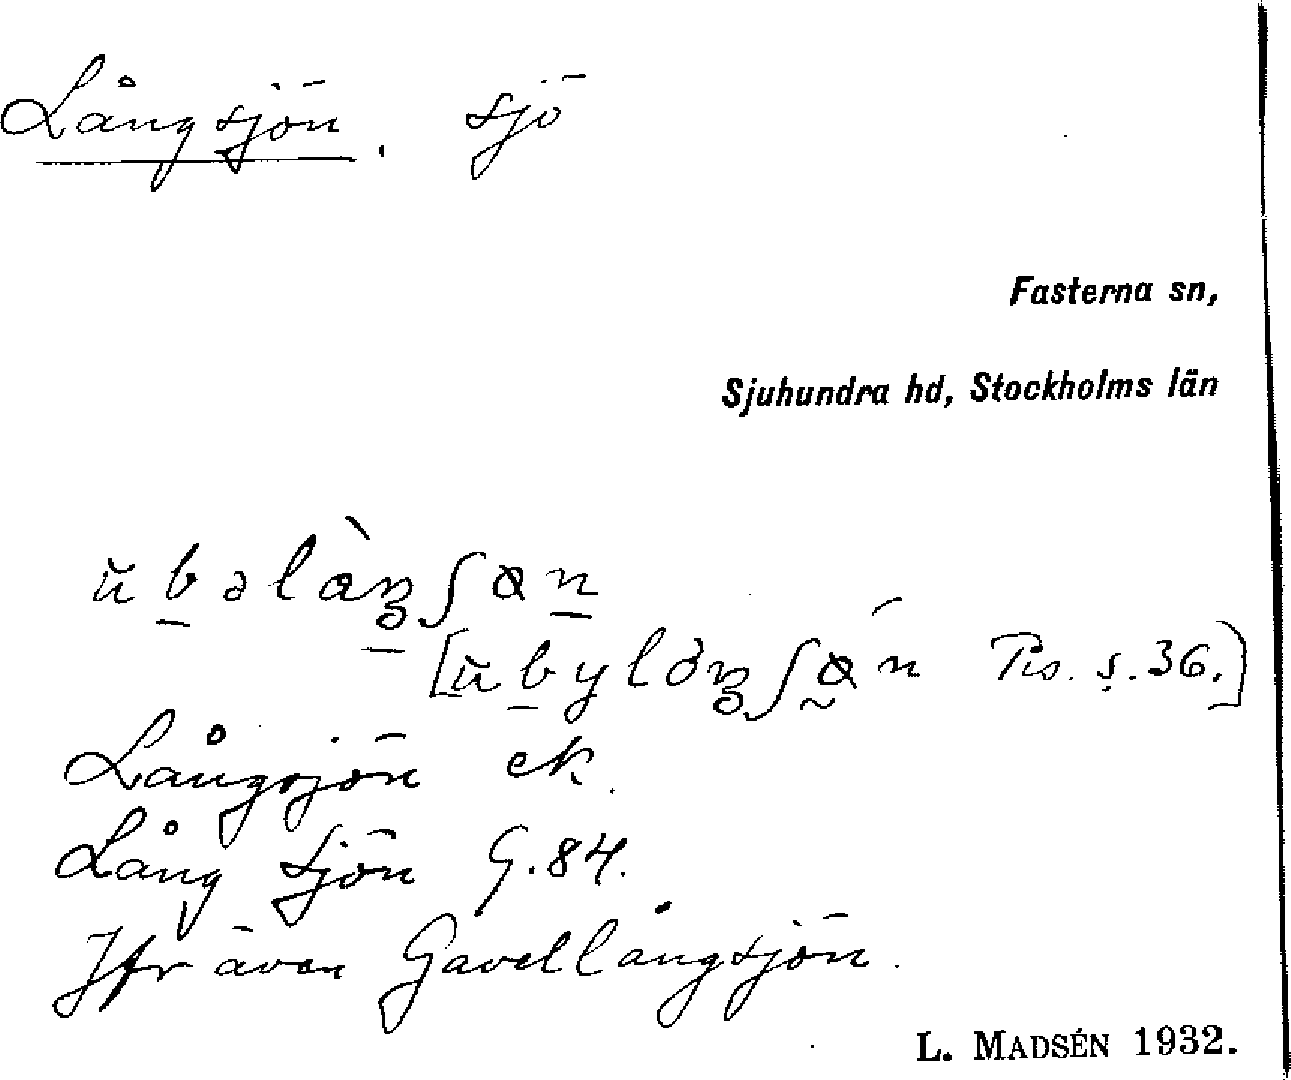 Långsjön. sjö
Fasterna sn,
Sjuhundra hd, Stockholms län
s. 36.]
Långsjön ek.
Lång Sjön G. 84.
Jfr även Gavellångsjön.
L. MADSÉN 1932.